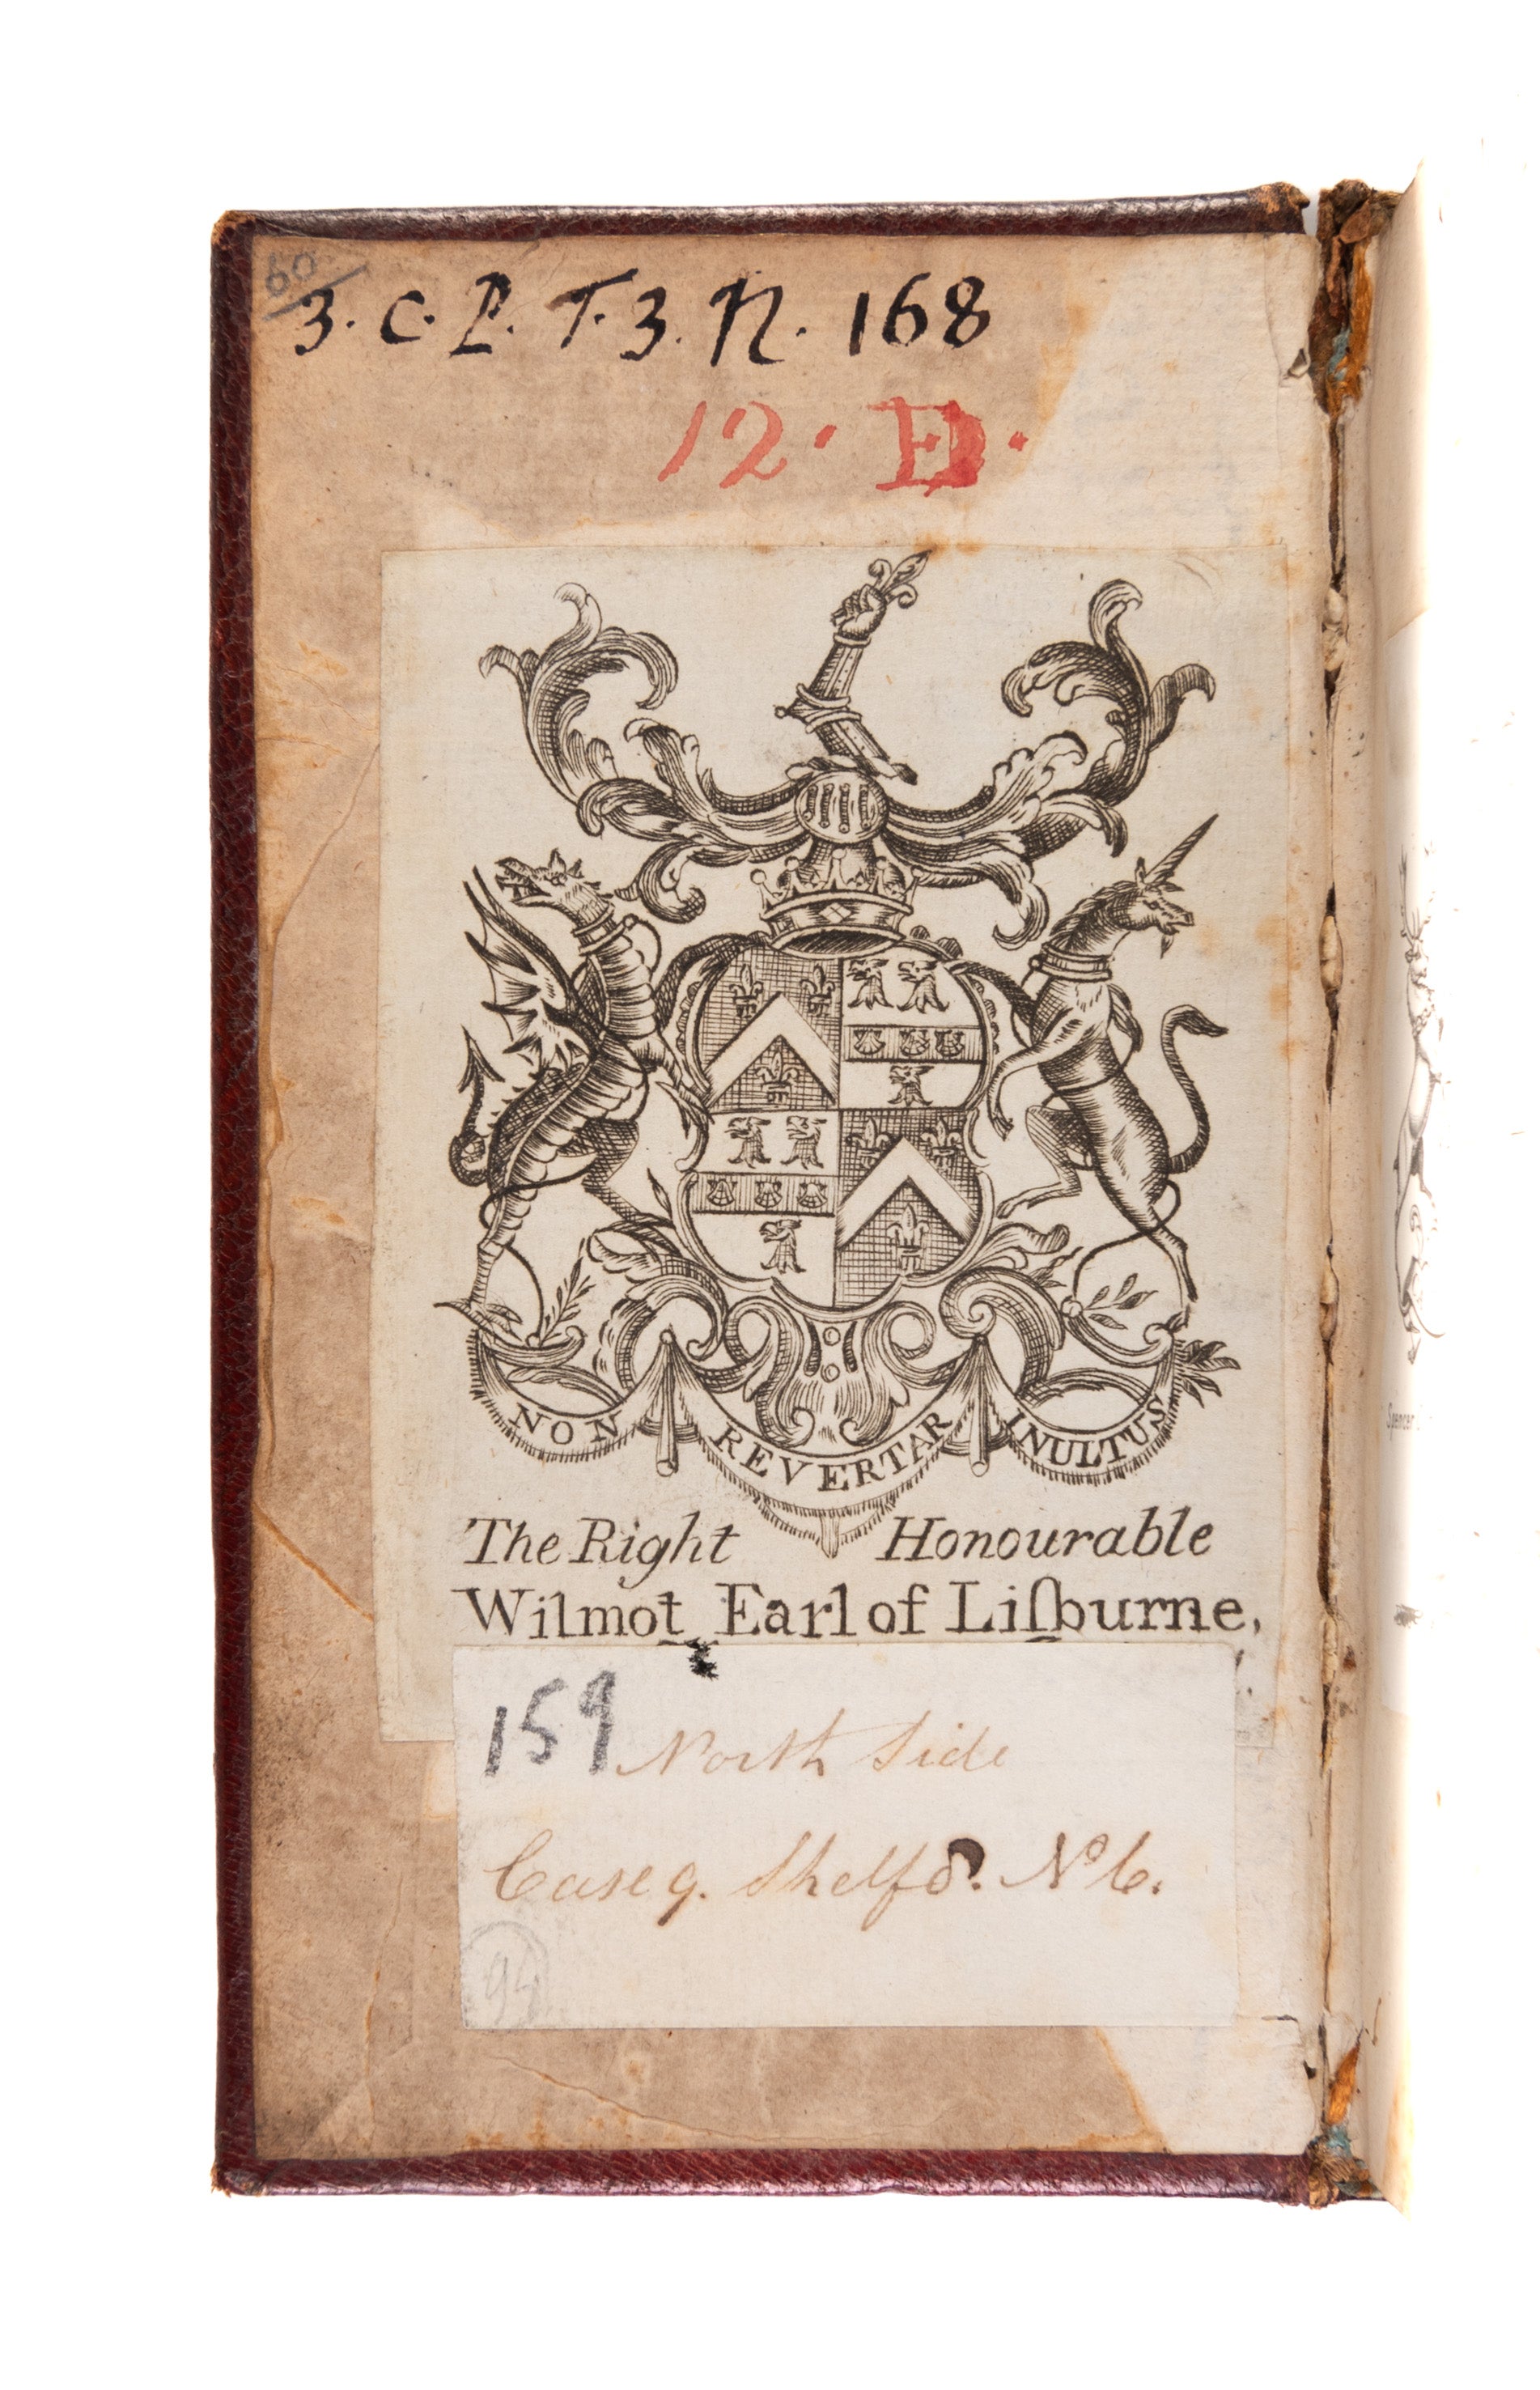 60
3. C. P. T. 3. N. 168
12. D.
NON REVERTAR INULTUS
The Right Honourable
Wilmot Earl of Liſburne,
159 North Side
Case 9. Shelf 8. No 6.
94
Spencer